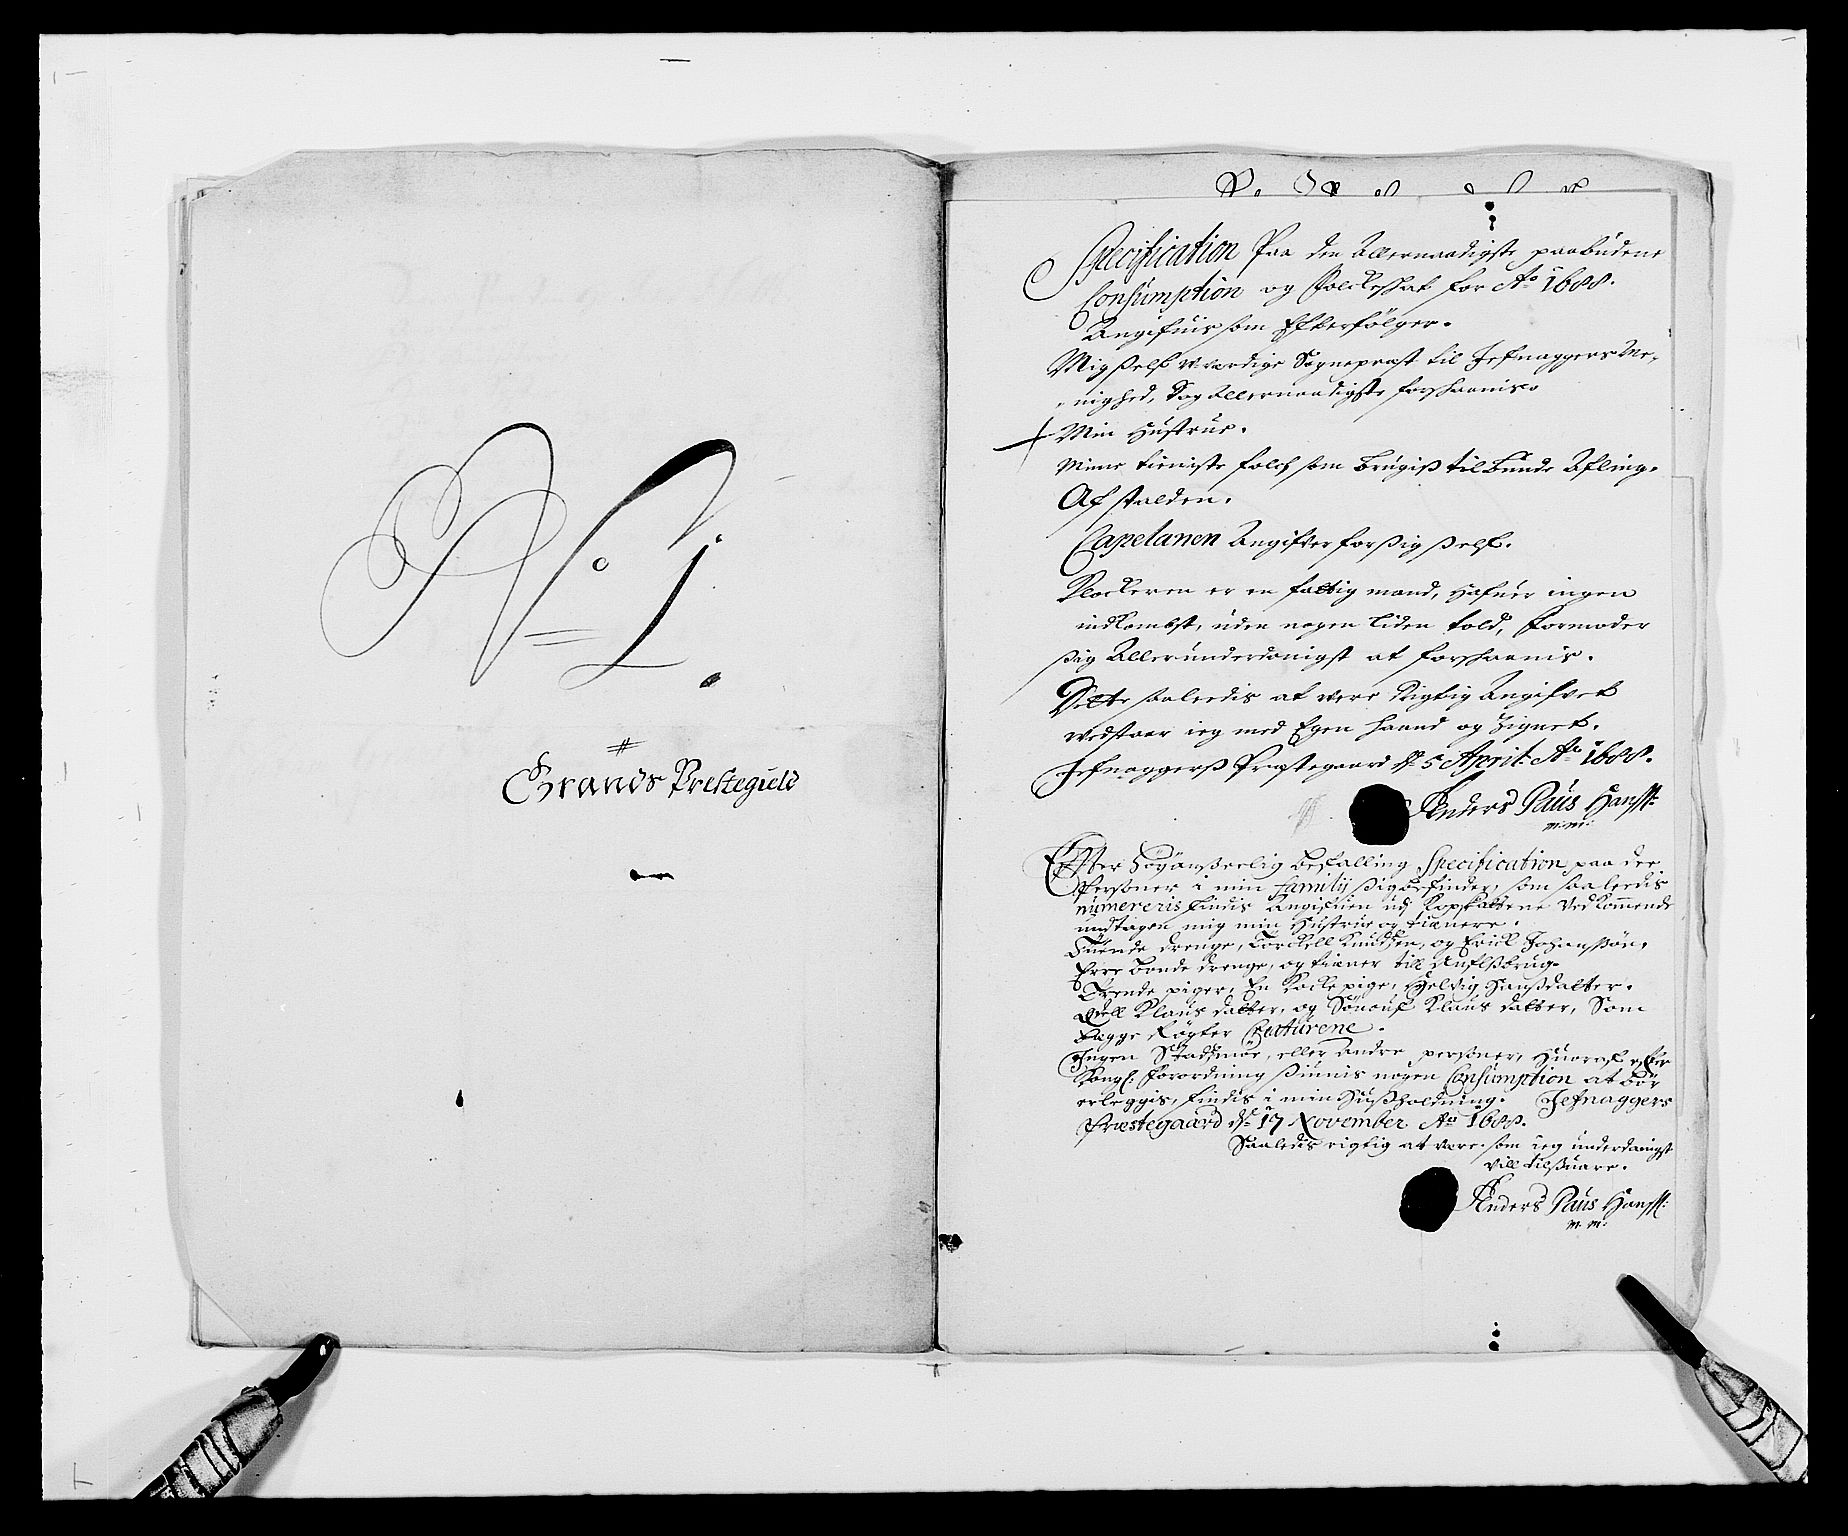 No 1.
Grands Prestegield
Specification Paa den Allernaadigste paabudene
Consumption og Folckeskat for Ao 1688.
Angifuis som Efterfölger.
Mig self uværdige Sogneprest til Jefnaggers Me-
nighed, dog Allernaadigste forskaanis.
Min Hustrue.
Mine tieniste folch som brugis til bunde Afling.
Af stalden.
Capelanen Angifver for sig self.
Klockeren er en fattig mand, hafuer ingen
indkombst, uden nogen liden told, formoder
sig Allerunderdanigst at forskaanis.
Dette saaledis at være Rigtig Angifvet
vedstaar ieg med Egen haand og Zignet.
Jefnaggers Præstegaard d. 5 April Ao 1688.
Anders Paus Hanss:
m: mi:
Efter Högönskerlig befalling Specification paa de
Persöner i min familij sig befinder, som saaledis
numereris findis Angifuen udj Kopskattene vedkommende
undtagen mig min Hustrue og tienere.
Tuende drenge, Torckell Knudsen, og Erick Johanssön,
Erre bonde drenge, og tiener till Auflsbrug.
Trende piger, En Kocke pige, Heldvig Hansdatter.
Kiell Klaus datter, og Sönouf Klaus datter, Som
begge Rögter Creaturene.
Ingen Stadsmöe, eller andre persöner, Huoraf efter
Kongl: Forordning siunnis nogen Consumption at bör
erleggis, findis i min Hussholdning. Jefnaggers
Præstegaard d. 17 November Ao 1688.
Saaledis rigtig at være som ieg underdanigst
vill tilsuare.
Anders Paus Hanss:
m. m: